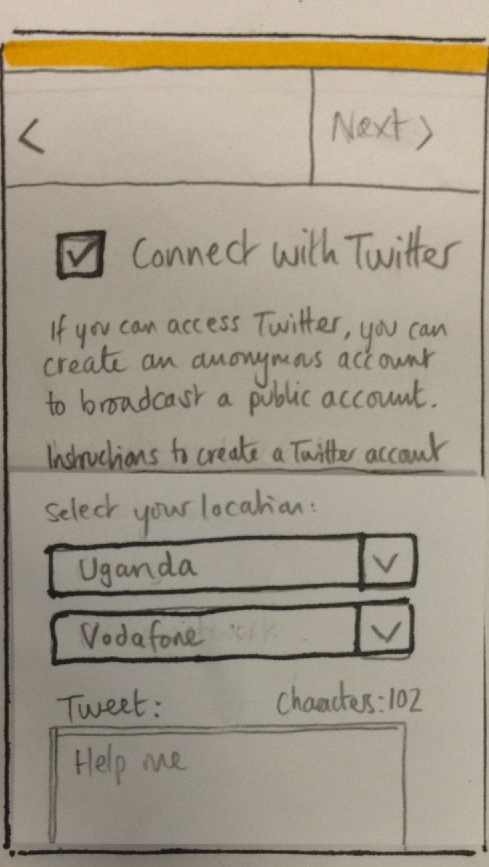 < Next >
Connect with Twitter
If you can access Twitter, you can
create an anonymous account
to broadcast a public account.
Instructions to create a Twitter account
Select your location:
Uganda
Vodafone
Tweet: Characters:102
Help me